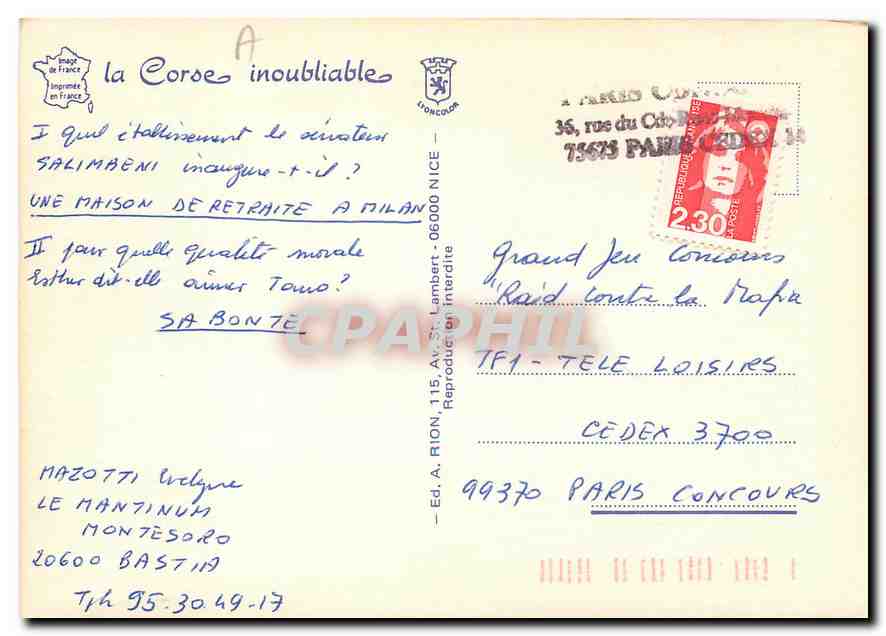 A
Image
de France
Imprimée
en France
la Corse inoubliable
LYONCOLOR
I quel établissement le sénateur
SALIMBENI inaugure-t-il ?
UNE MAISON DE RETRAITE A MILAN
II pour quelle qualité morale
Esther dit-elle aimer Tano ?
SA BONTE
MAZOTTI Evelyne
LE MANTINUM
MONTESORO
20600 BASTIA
Tph 95.30.49-17
— Ed. A. RION, 115, Av. St. Lambert - 06000 NICE —
Reproduction interdite
PARIS
36, rue du
75675 PARIS CEDEX 14
REPUBLIQUE FRANÇAISE
2,30
LA POSTE
Grand Jeu Concours
"Raid contre la Mafia
TF1 - TELE LOISIRS
CEDEX 3700
99370 PARIS CONCOURS
CPAPHIL